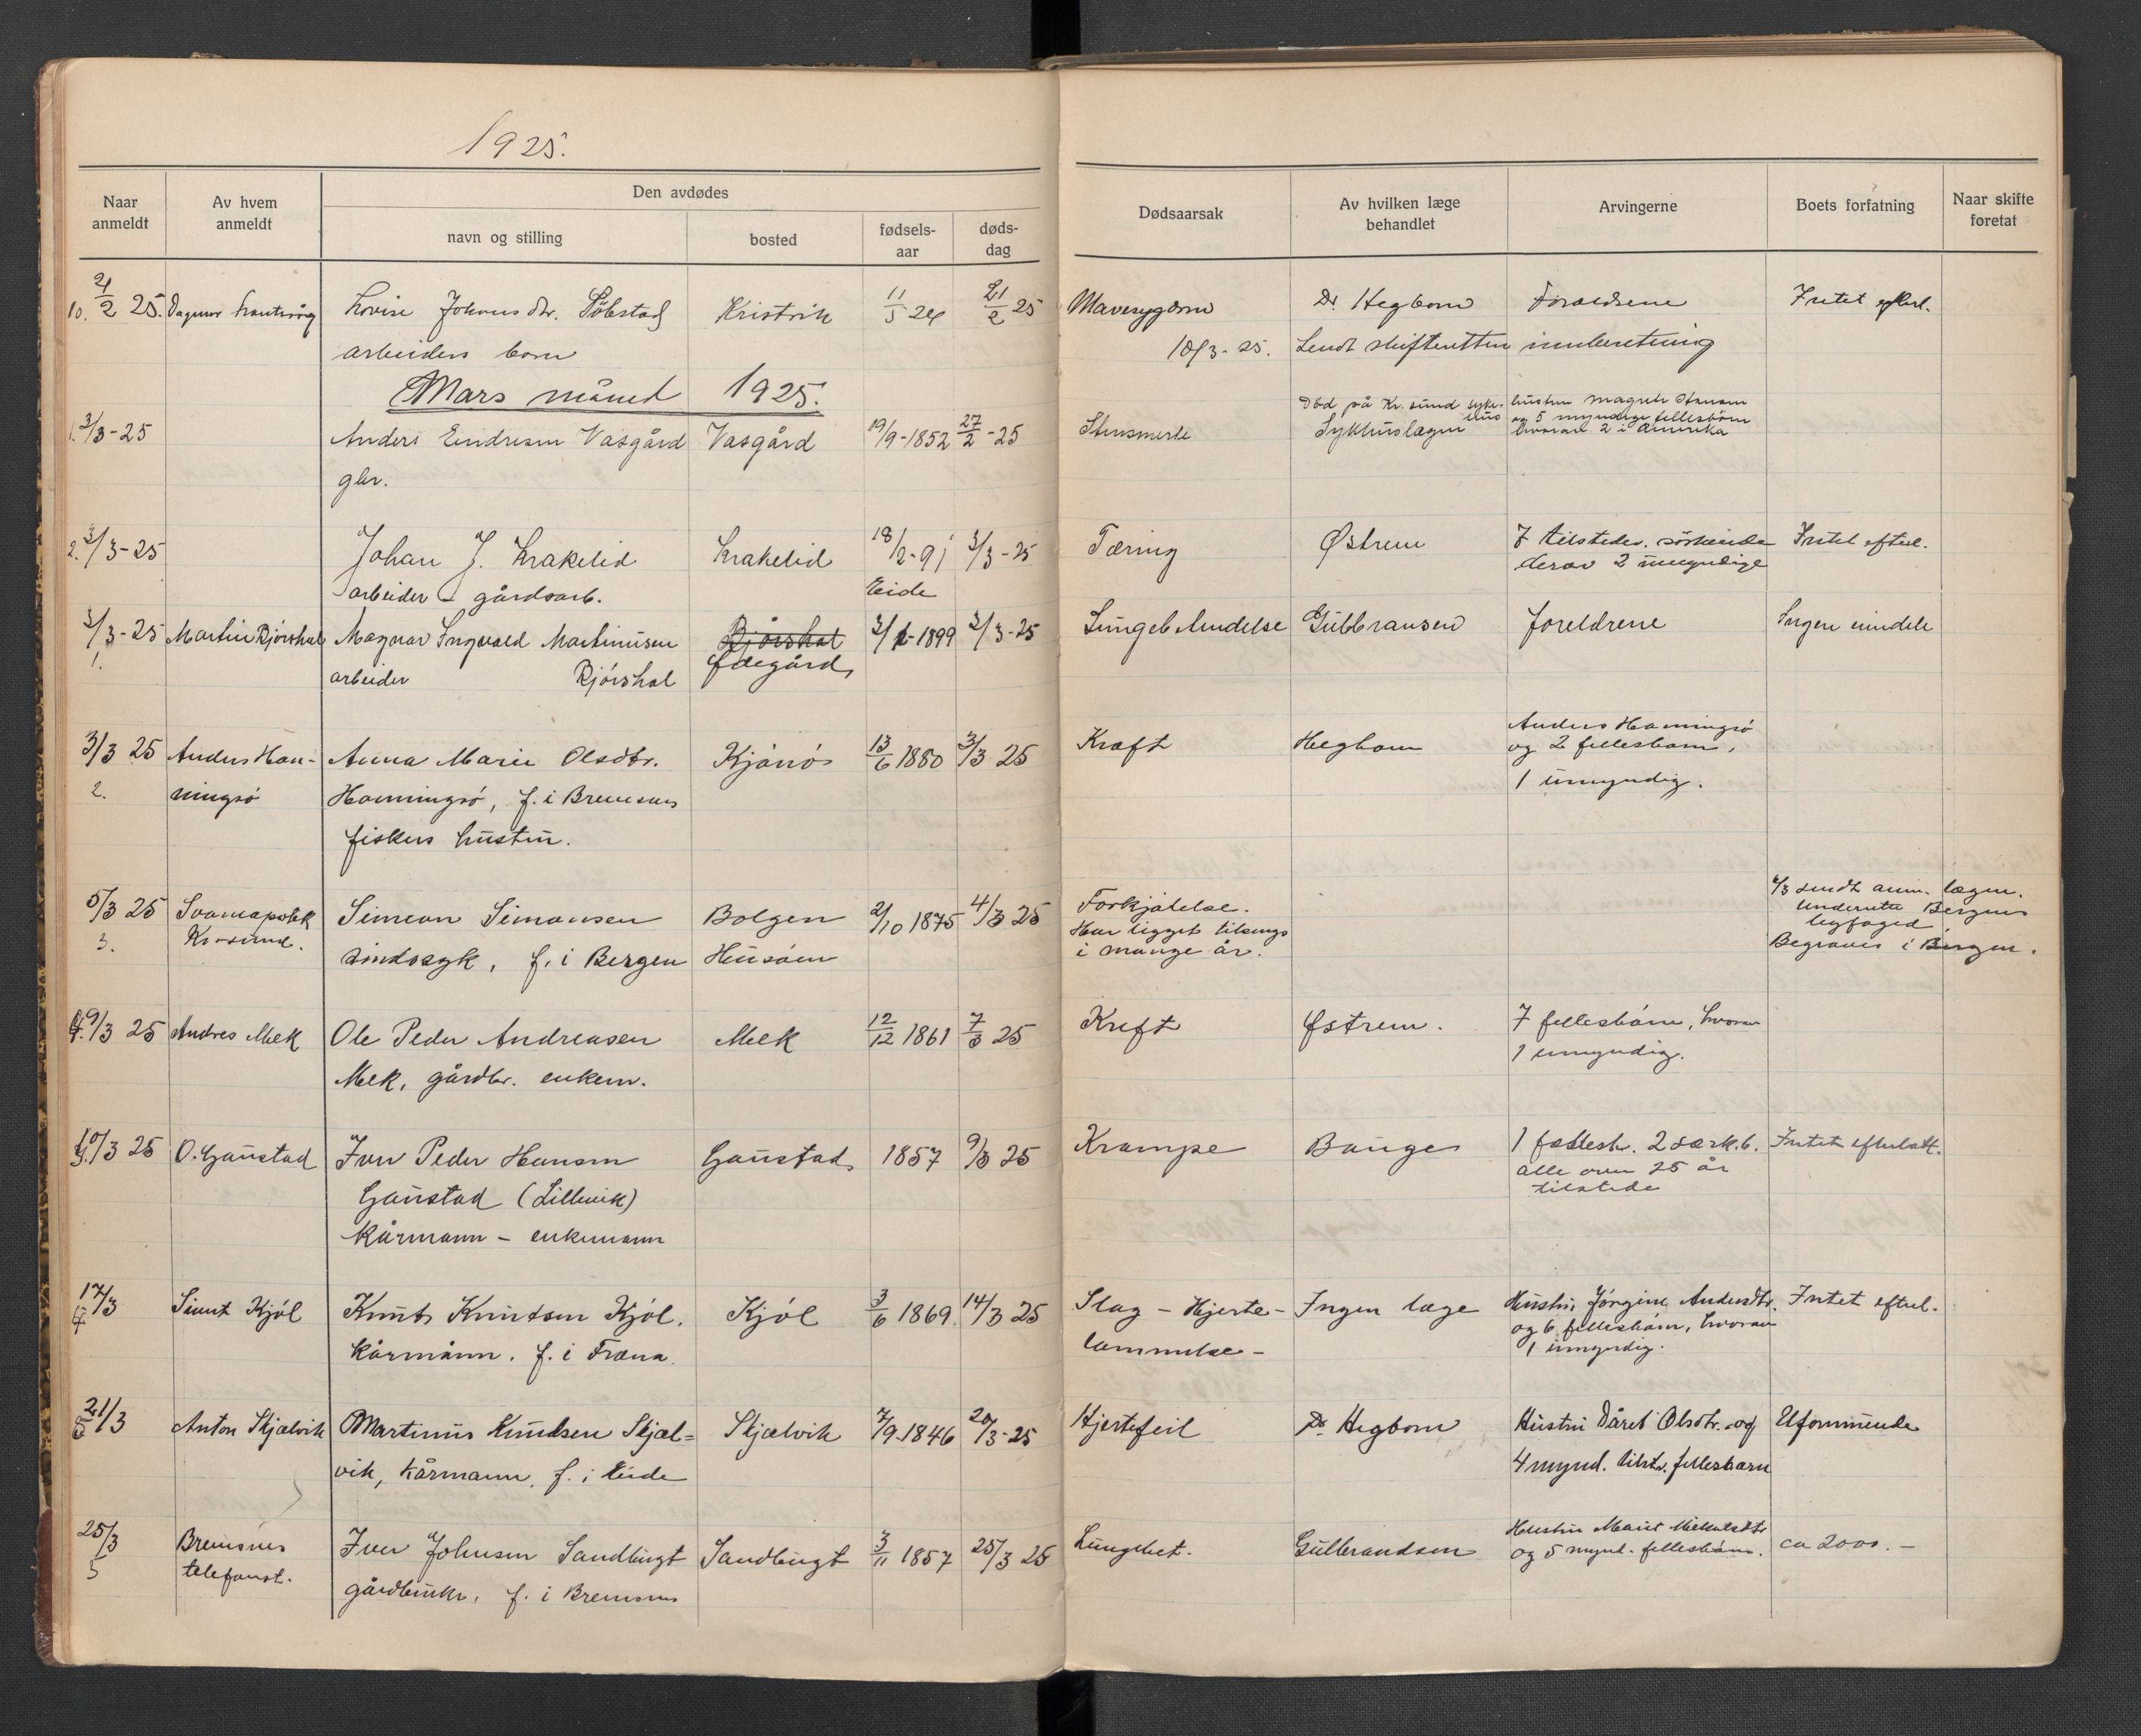 1925.
Naar anmeldt
Av hvem anmeldt
Den avdødes
navn og stilling
bosted
fødsels-aar
døds-dag
Dødsaarsak
Av hvilken læge behandlet
Arvingerne
Boets forfatning
Naar skifte foretat
10. 21/2 25. Dagmar Lovise Johansdtr. Kristvik 11/5 24 21/2 25 Mavesygdom Dr. Hegbom Foreldrene Intet efterl.
arbeiders barn 18/3-25. Sendt skifteretten innberetning
Mars måned 1925.
Død på Kr.sund syke- hustru Magnh. Hansen
1. 3/3-25 Anders Eindresen Vasgård Vasgård 19/9-1852 27/2-25 Stensmerte hus og 5 myndige fellesbörn
Sykhuslægen hvorav 2 i Amerika
gbr.
2. 3/3-25 Johan J. Krakelid Krakelid 18/2-91 3/3-25 Tæring Østrem 7 tilstedev. söskende Intet efterl.
derav 2 umyndige
arbeider - gårdsarb. Eide
3/3-25 Martin Bjórshol Magnar Ingvald Martinusen Bjórshol 3/2-1899 3/3-25 Lungebetendelse Gulbransen foreldrene Ingen eiendele
1. arbeider Bjórshol Ødegård
Anders Hanningsö
3/3 25 Anders Han- Anna Marie Olsdtr. Kjönnö 13/6 1880 3/3 25 Kræft Hegbom og 2 fellesbarn,
2. ningsö Honningsö, f. i Bremsnes 1 umyndig.
fiskers hustru.
6/3 sendt anm. lægen.
5/3 25 Svaneapotek Simeon Simonsen Bolgen 2/10 1875 4/3 25 Forkjölelse. Underrettet Bergens
3. Kr.sund. Har ligget tilsengs byfoged.
sindssyk, f. i Bergen Husöen i mange år. Begraves i Bergen.
4. 9/3 25 Andres Mek Ole Peder Andreasen Mek 12/12 1861 7/3 25 Kreft Østrem. 7 fellesbörn, hvorav
Mek, gårdbr. enkem. 1 umyndig.
10/3 25 O. Gaustad Iver Peder Hansen Gaustad 1857 9/3 25 Krampe Bauge 1 fællesb. 2 særk.b. Intet efterlatt.
Gaustad (Lillevik) alle over 25 år
tilstede
Kårmann - enkemann
17/3 Kjöl Knut Knutsen Kjöl. Kjöl 3/6 1869. 14/3 25 Slag - Hjerte- Ingen læge Hustru Jörgine Andersdtr. Intet efterl.
4 og 6 fellesbörn, hvorav
kårmann. f. i Fræna. lammelse - 1 umyndig.
21/3 Anton Skjelvik Martinus Knudsen Skjel= Skjelvik 7/9-1846 20/3-25 Hjertefeil Dr. Hegbom Hustru Dåret Olsdtr. og Uformuende
vik, kårmann, f. i Eide 4 mynd. tilst. fellesbarn
25/3 Bremsnes Iver Johnsen Sandbugt Sandbugt 3/11 1857 25/3 25 Lungebet. Gulbrandsen Hustru Marit
5 telefonst. og 5 mynd. fellesbörn. ca 2000.-
gårdbruker, f. i Bremsnes